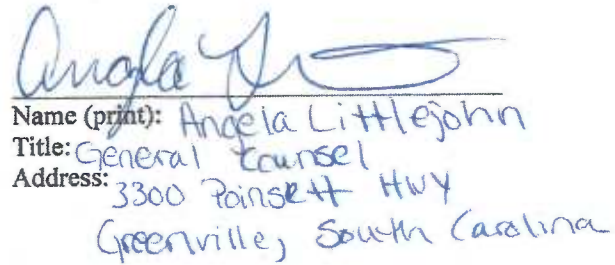 Angela L
Name (print): Angela Littlejohn
Title: General Counsel
Address: 3300 Poinsett Hwy
Greenville, South Carolina